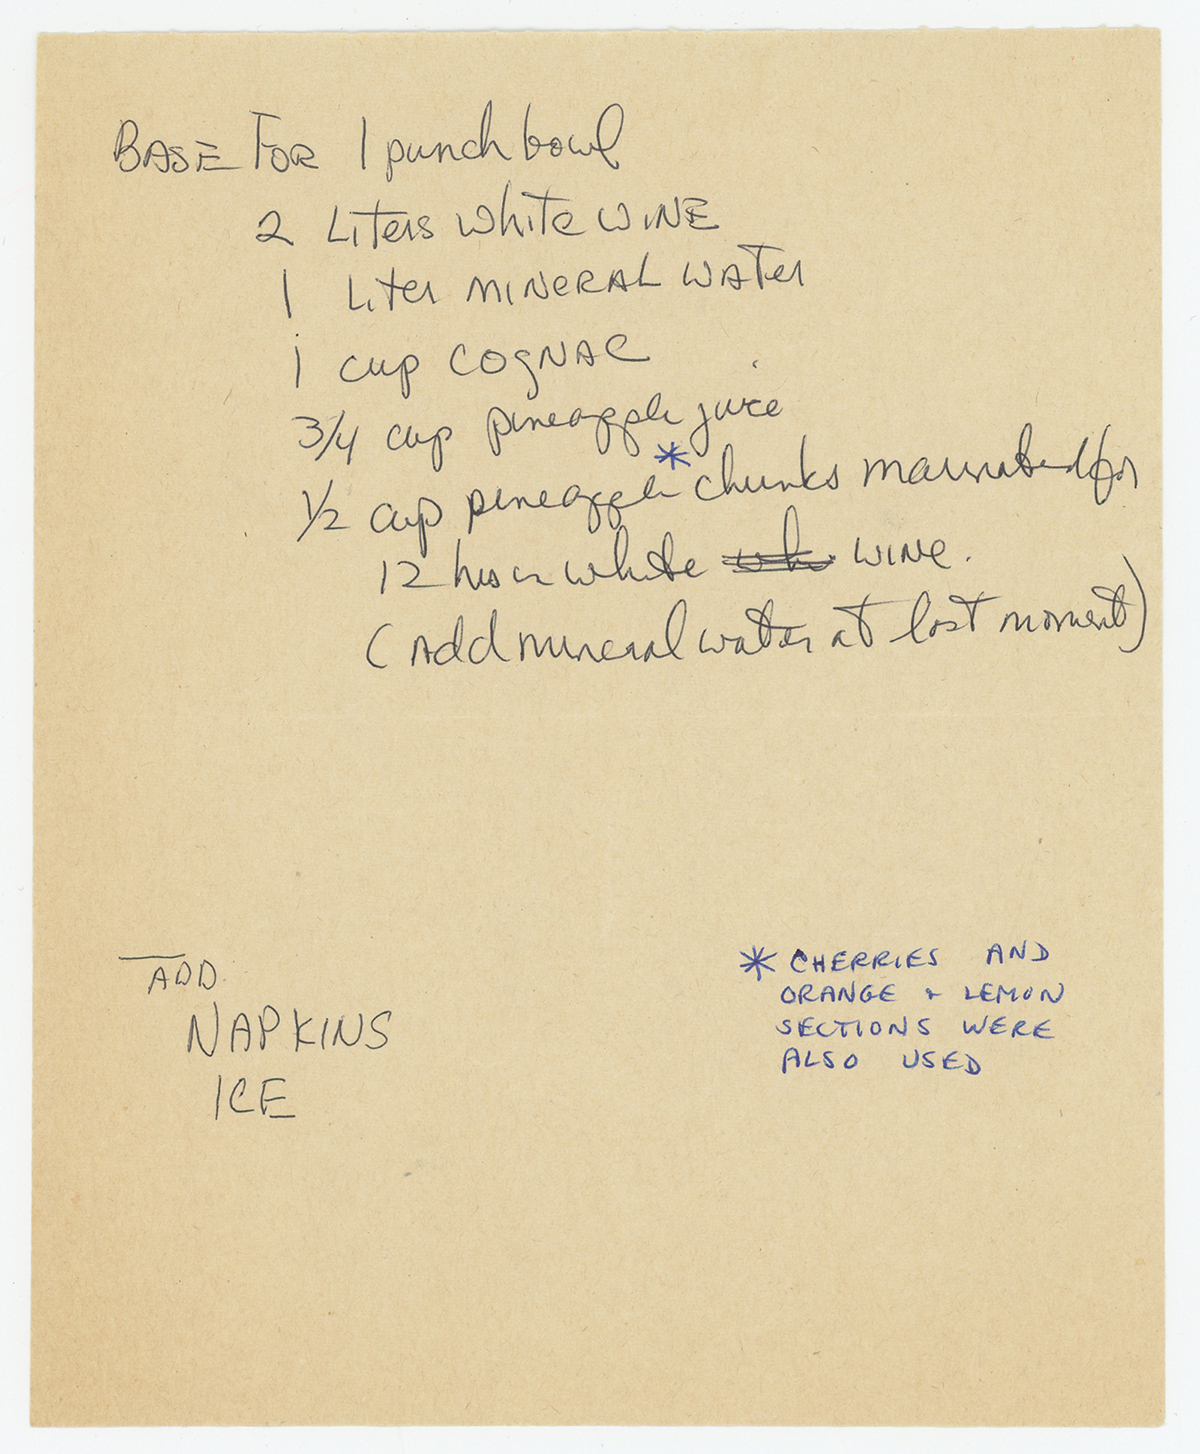 BASE FOR 1 punch bowl
2 Liters white WINE
1 Liter MINERAL WATER
1 cup COGNAC
3/4 cup pineapple juice
1/2 cup pineapple* chunks marinated for
12 hrs in white wh. WINE.
(Add mineral water at last moment)
ADD
NAPKINS
ICE
* CHERRIES AND
ORANGE + LEMON
SECTIONS WERE
ALSO USED